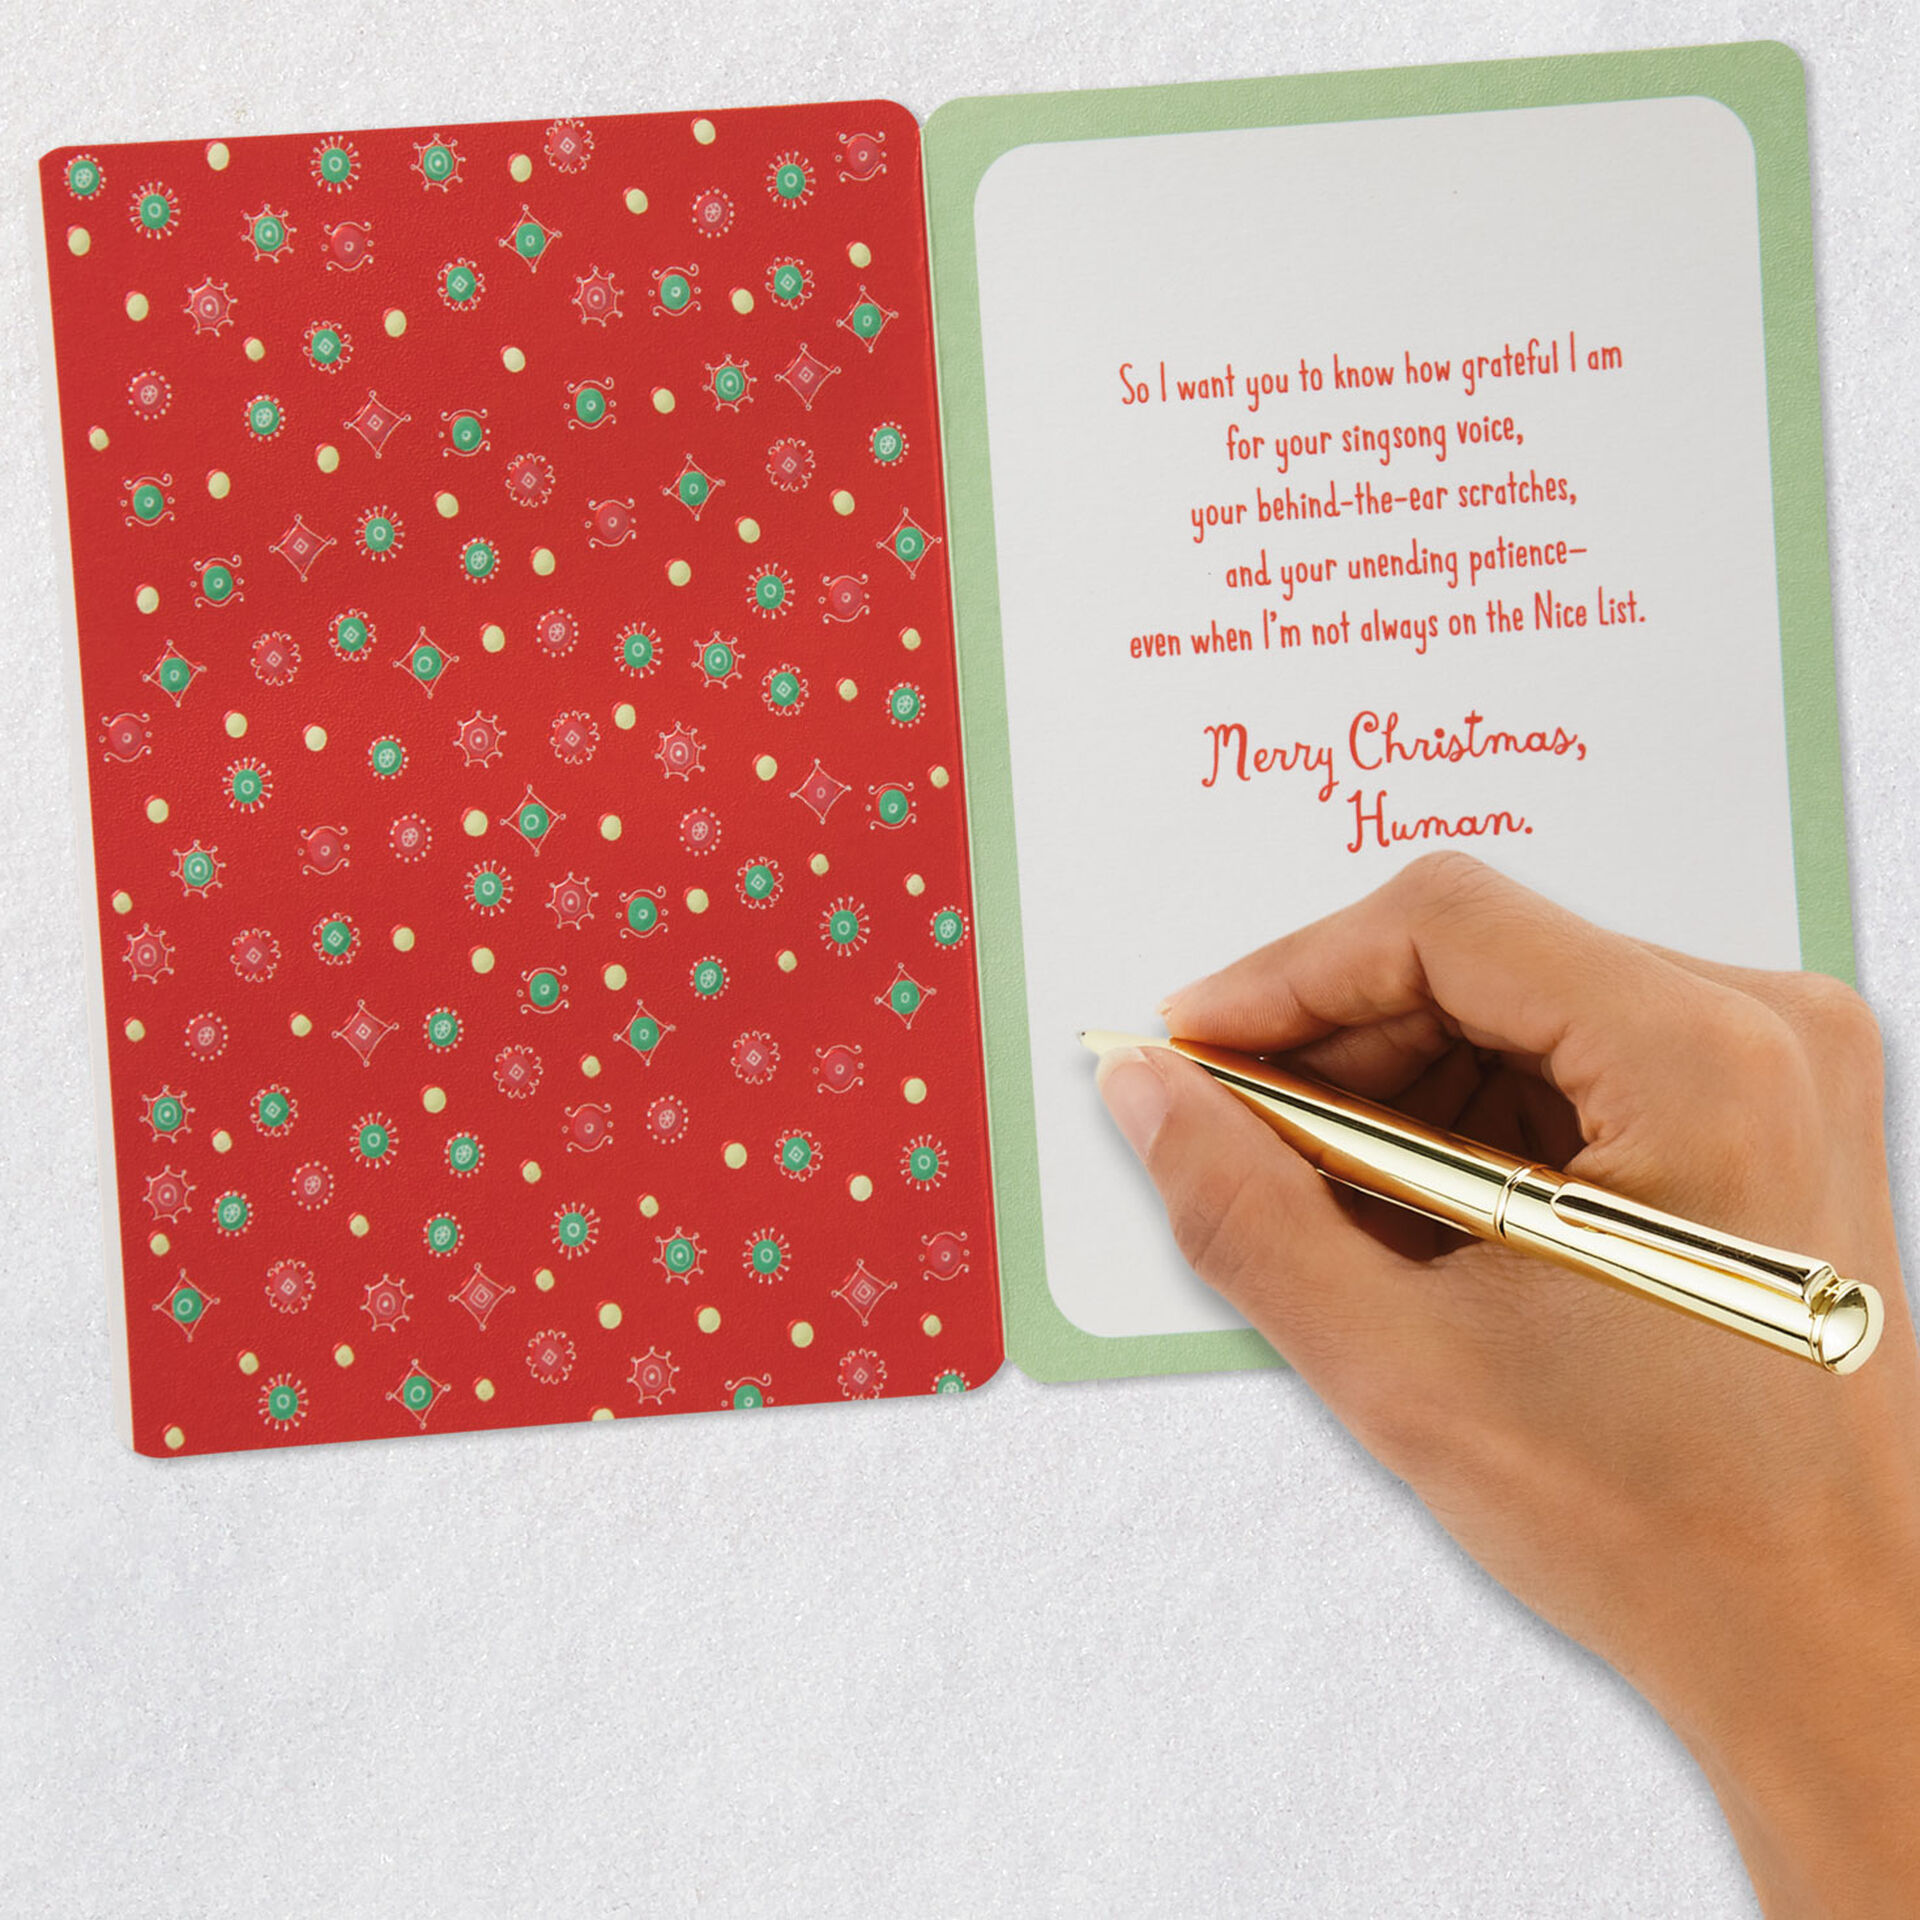 So I want you to know how grateful I am
for your singsong voice,
your behind-the-ear scratches,
and your unending patience—
even when I'm not always on the Nice List.
Merry Christmas,
Human.